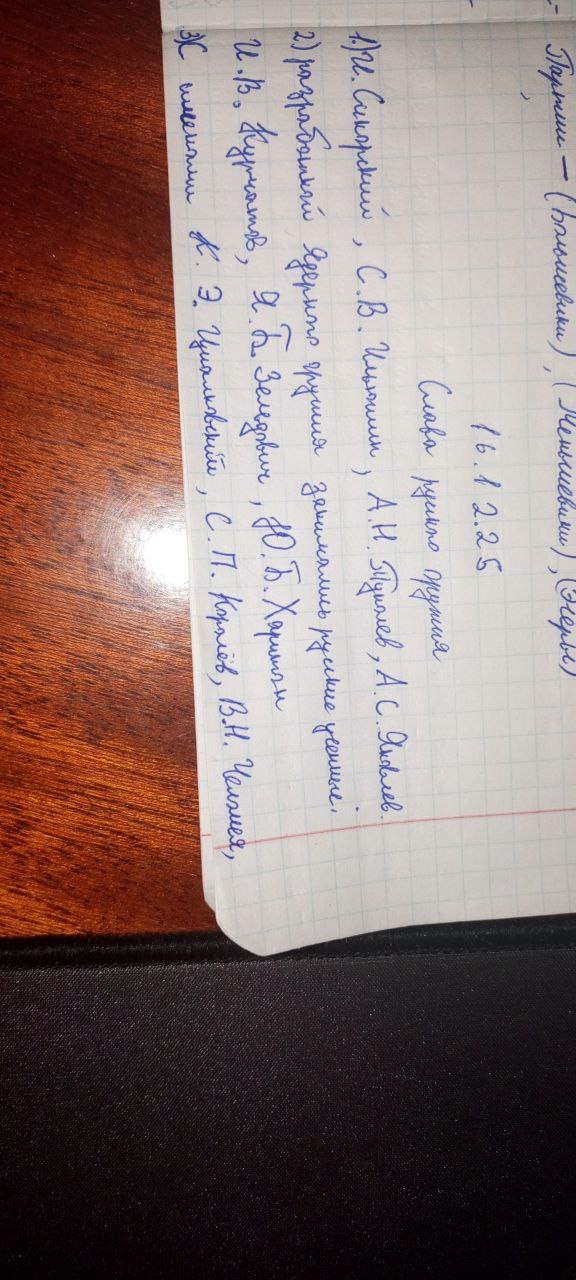 Партии – (Большевики), (Меньшевики), (Эсеры)
16.12.25
Слава рускго оружия
1.) И. Сикорский, С.В. Ильюшин, А.Н. Туполев, А.С. Яковлев.
2) разработкой ядерного оружия занимались руские ученные.
И.В. Курчатов, Я.Б. Зельдович, Ю.Б. Харитон
3) С именами К.Э. Циалковский, С.П. Королёв, В.Н. Челомея,